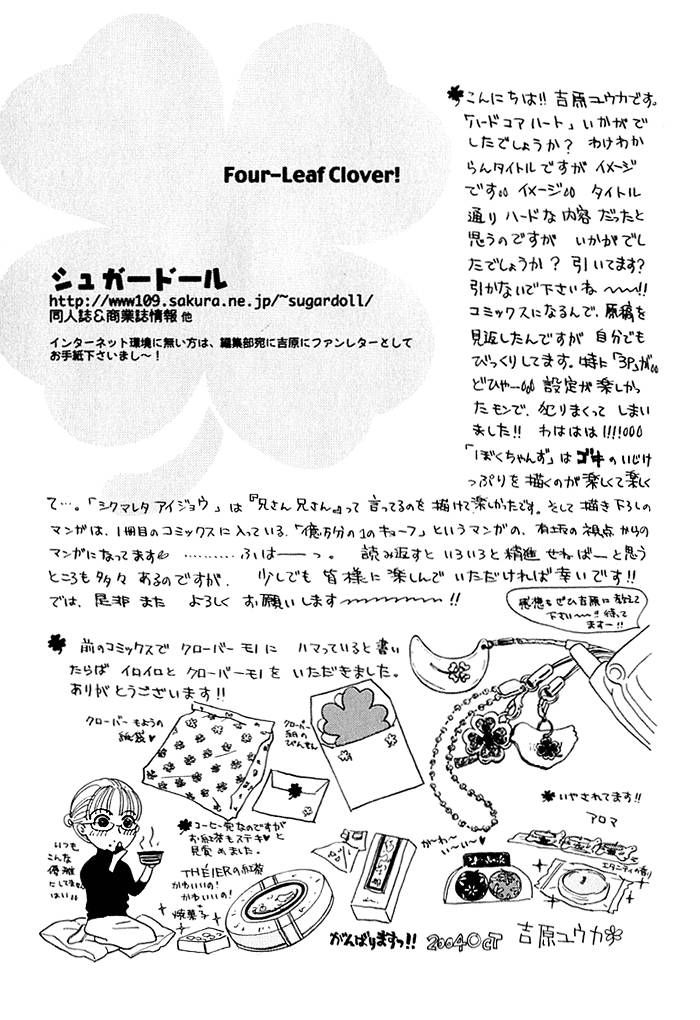 Four-Leaf Clover!
シュガードール
http://www109.sakura.ne.jp/~sugardoll/
同人誌&商業誌情報 他
インターネット環境に無い方は、編集部宛に吉原にファンレターとして
お手紙下さいまし～！
こんにちは!! 吉原ユウカです。
「ハードコアハート」いかがで
したでしょうか？ わけわか
らんタイトルですが イメージ
です。。イメージ。。 タイトル
通り ハードな内容 だったと
思うのですが いかがでし
たでしょうか？ 引いてます?
引かないで下さいね ～～!!
コミックスになるんで、原稿を
見返したんですが 自分でも
びっくりしてます。特に「3P」が。。
どひゃー。。 設定が楽しかっ
たモンで、犯りまくって しまい
ました!! わははは!!!!。。。
「ぼくちゃんず」は ゴキ のいじけ
っぷりを 描くのが 楽しくて 楽しく
て…。「シクマレタ アイジョウ」は『兄さん 兄さん』って 言ってるのを 描けて 楽しかったです。そして 描き下ろしの
マンガは、1冊目のコミックスに入っている、「億万分の1のキューブ」というマンガの、有坂の視点 からの
マンガになってます ……… ふいはーーっ。 読み返すと いろいろと 精進 せねばーと思う
ところも多々 あるのですが、 少しでも 皆様に 楽しんで いただければ 幸いです!!
では、是非 また よろしく お願いします～～～～!!
感想も ぜひ 吉原に 教えて
下さい～!! 待って
ます～!!
前のコミックスで クローバーモノに ハマっていると書い
たらば イロイロと クローバーモノを いただきました。
ありがとうございます!!
クローバーもようの
紙袋♥
クローバー
柄の
びんせん
いやされてます!!
アロマ
コーヒー党なのですが
お紅茶もステキ♥と
見覚めました。
THÉIERの紅茶
かわいいの!
かわいいの!
焼菓子
がーわー
いーいー♥
いつも
こんな
優雅
にしてません
はい
がんばりますっ!!
2004 Oct
吉原ユウカ